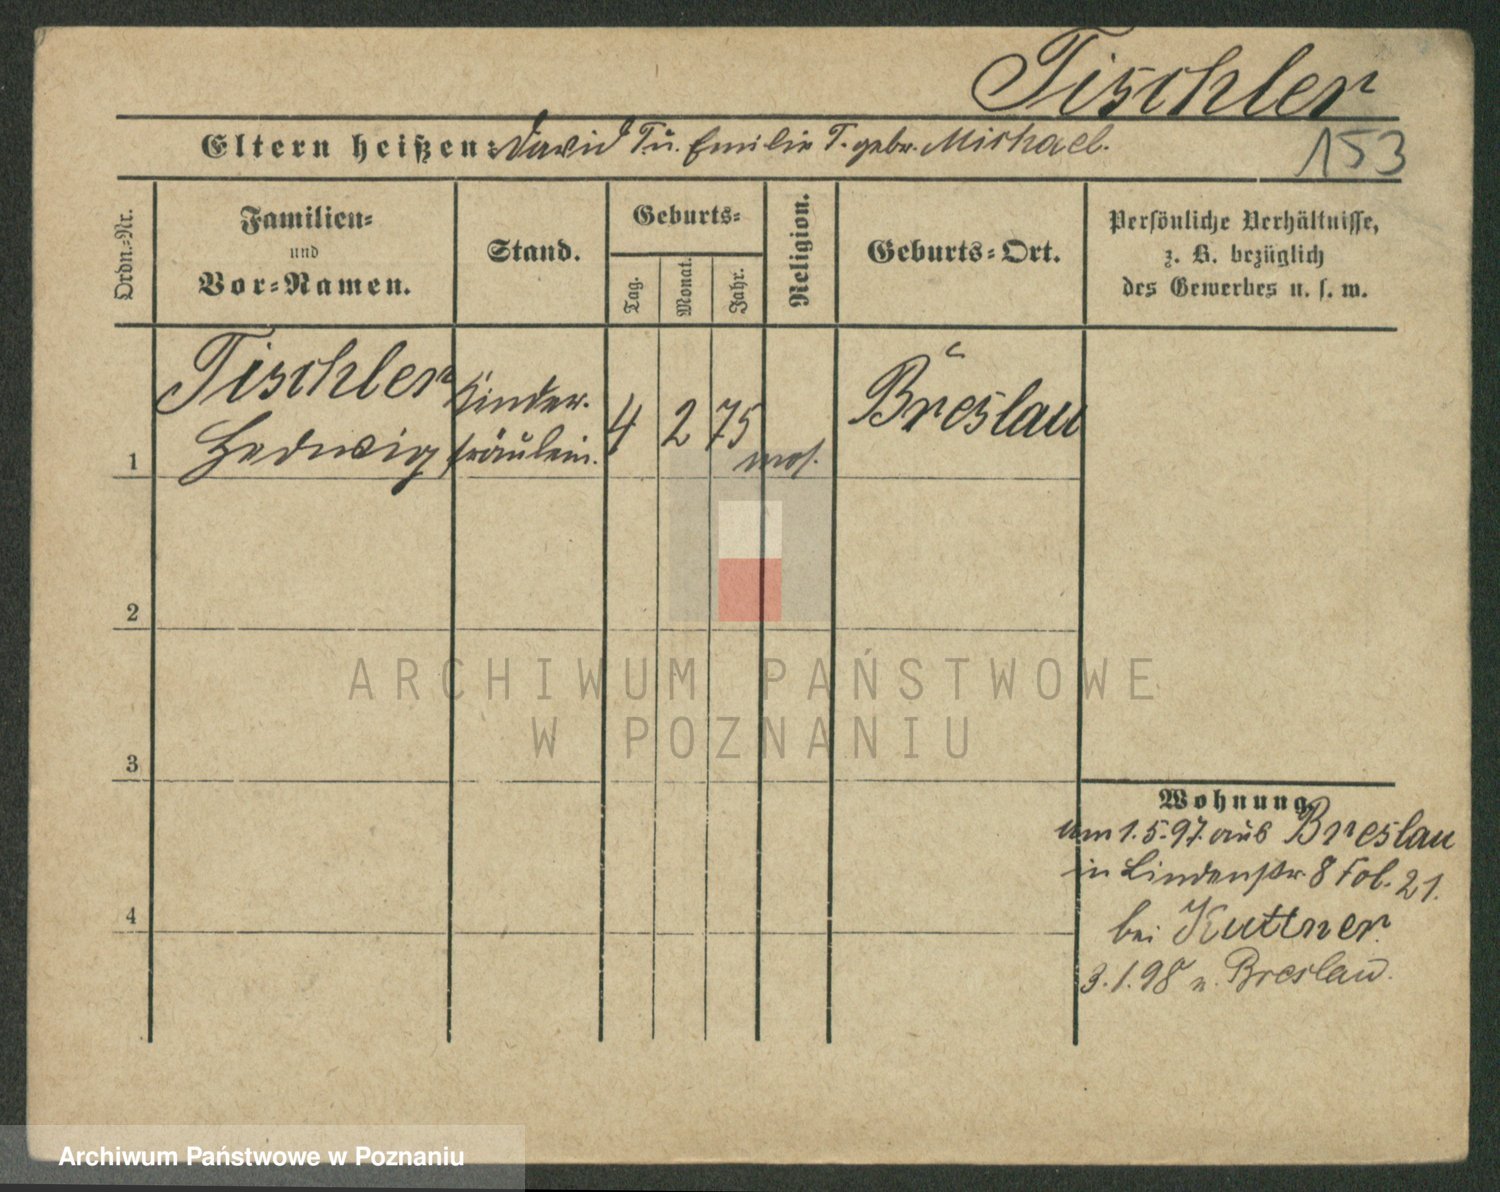 Tischler
Eltern heißen: David T. u. Emilie T. gebr. Michael.
153
Ordn.-Nr.
Familien-
und
Vor-Namen.
Stand.
Geburts-
Tag.
Monat.
Jahr.
Religion.
Geburts-Ort.
Persönliche Verhältnisse,
z. B. bezüglich
des Gewerbes u. s. w.
1
Tischler
Hedwig
Kinder-
fräulein.
4
2
75
mos.
Breslau
2
3
4
ARCHIWUM PAŃSTWOWE
W POZNANIU
Wohnung.
am 1.5.97. aus Breslau
in Lindenstr. 8 Fol. 21.
bei Kuttner.
3.1.98 n. Breslau.
Archiwum Państwowe w Poznaniu